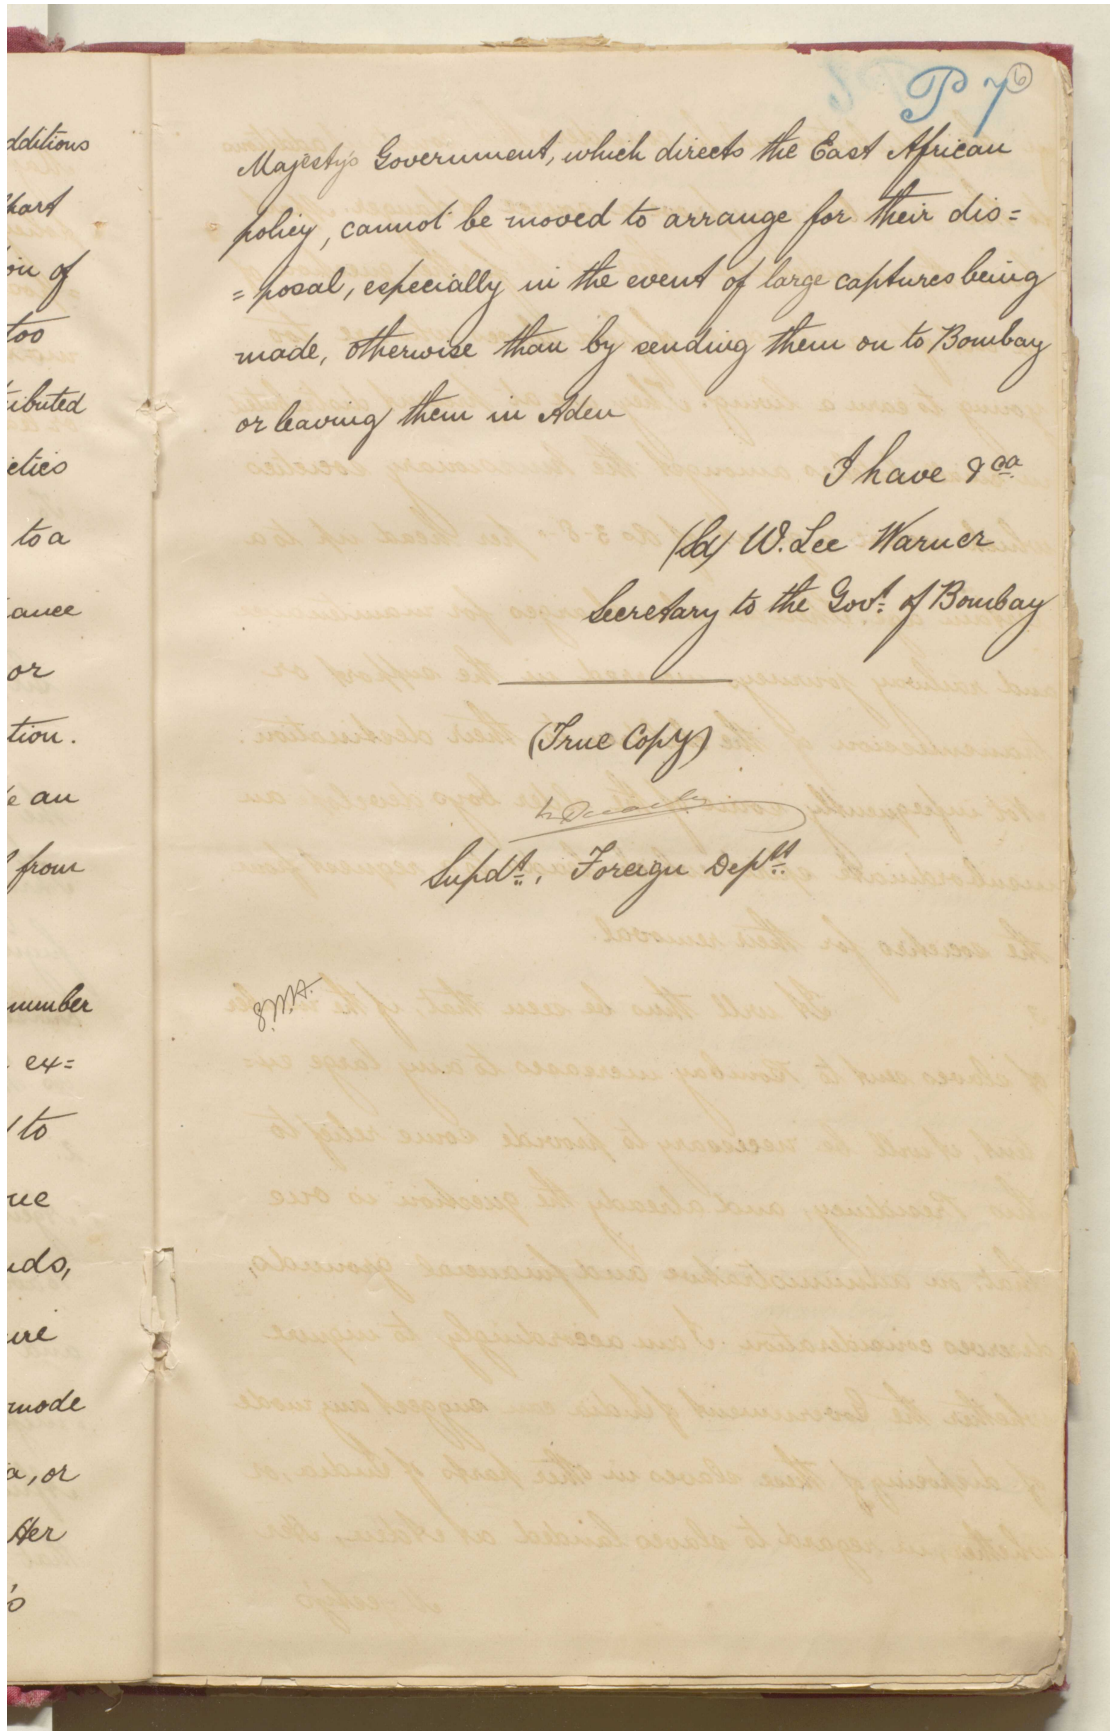 P 7
6
dditions
part
on of
too
tributed
cieties
to a
ance
or
tion.
e an
from
number
ex=
to
ue
nds,
ire
mode
a, or
Her
's
Majesty's Government, which directs the East African
policy, cannot be moved to arrange for their dis=
=posal, especially in the event of large captures being
made, otherwise than by sending them on to Bombay
or leaving them in Aden
I have &ca.
(Sd) W. Lee Warner
Secretary to the Govt. of Bombay
(True Copy)
Supdt., Foreign Deptt.